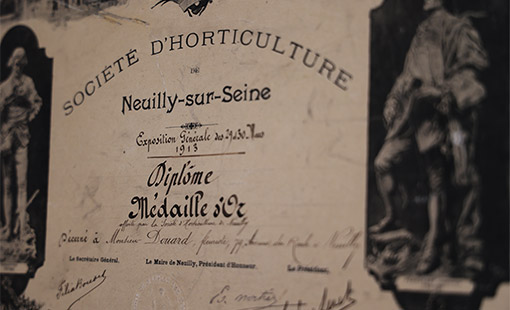 SOCIÉTÉ D'HORTICULTURE
DE
Neuilly-sur-Seine
Exposition Générale des 29 et 30
1913
Diplôme
Médaille d'Or
offerte par la Société d'Horticulture de Neuilly
Décerné à Monsieur Douard, fleuriste, 77 Avenue du Roule à Neuilly
Le Secrétaire Général. Le Maire de Neuilly, Président d'Honneur. Le Président.